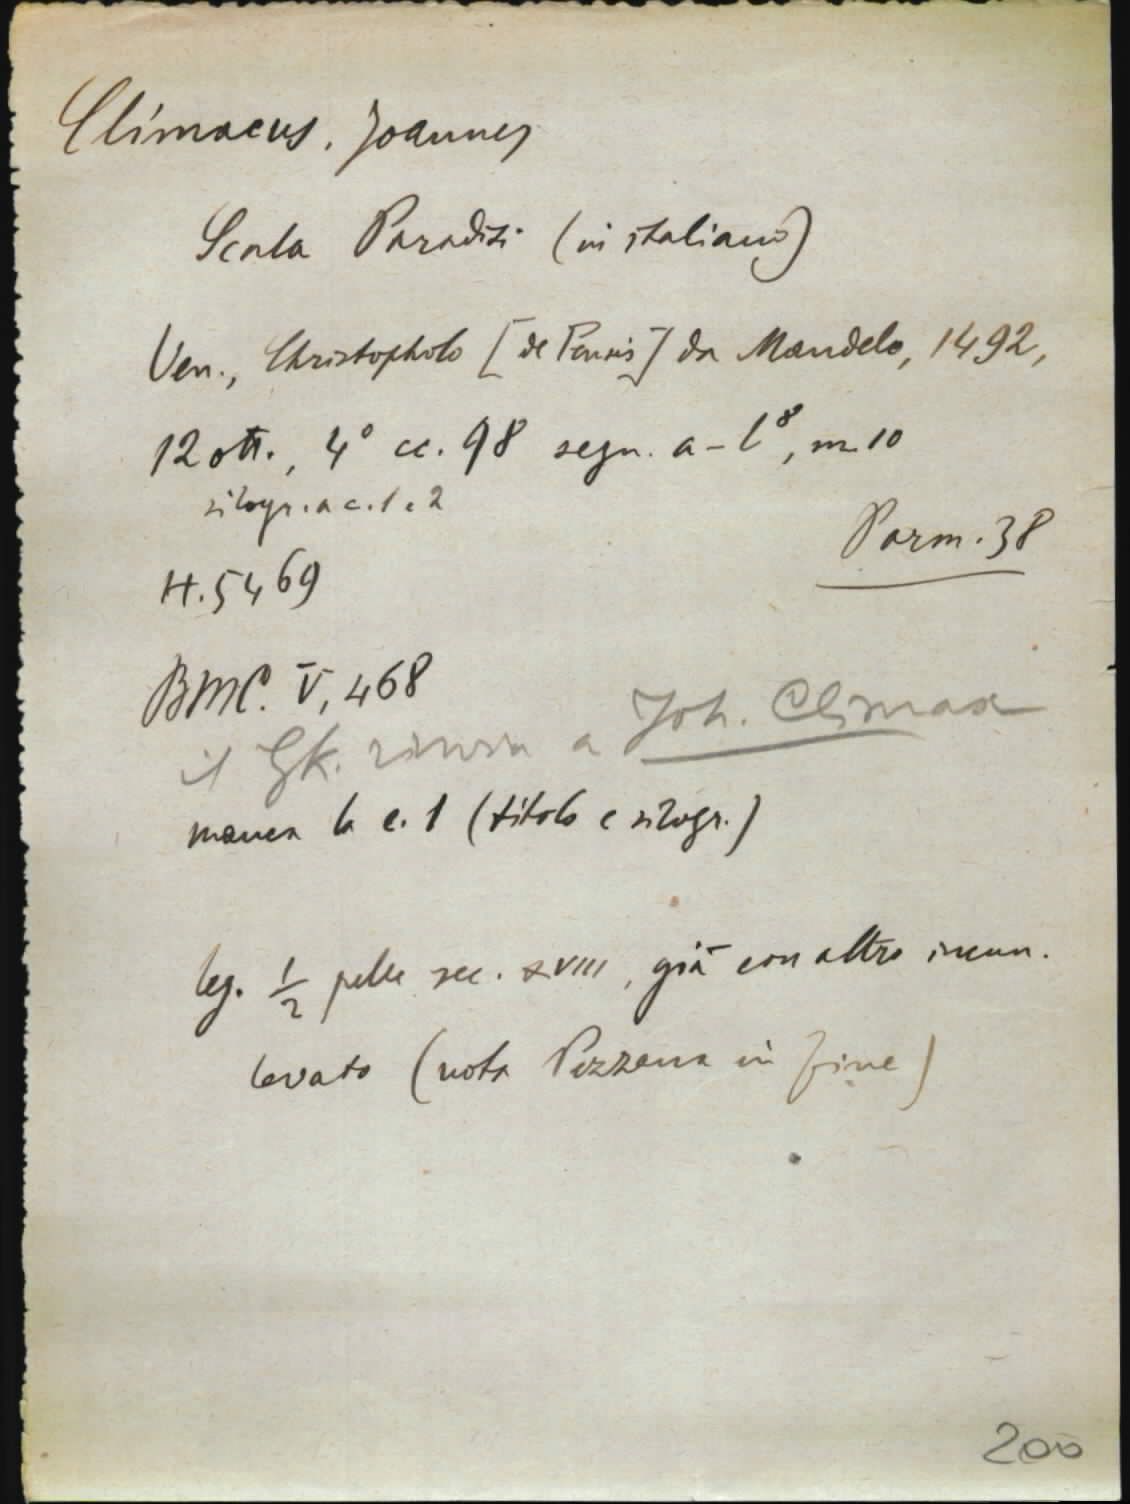 Climacus, Joannes
Scala Paradisi (in italiano)
Ven., Christopholo [de Pensis] da Mandelo, 1492,
12 ott., 4° cc. 98 segn. a-l⁸, m 10
silogr. a c. 1 e 2
Parm. 38
H. 5469
BMC. V, 468
il GK. rinvia a Joh. Climax
manca la c. 1 (titolo e silogr.)
leg. ½ pelle sec. XVIII, già con altro incun.
levato (nota Pezzana in fine)
200